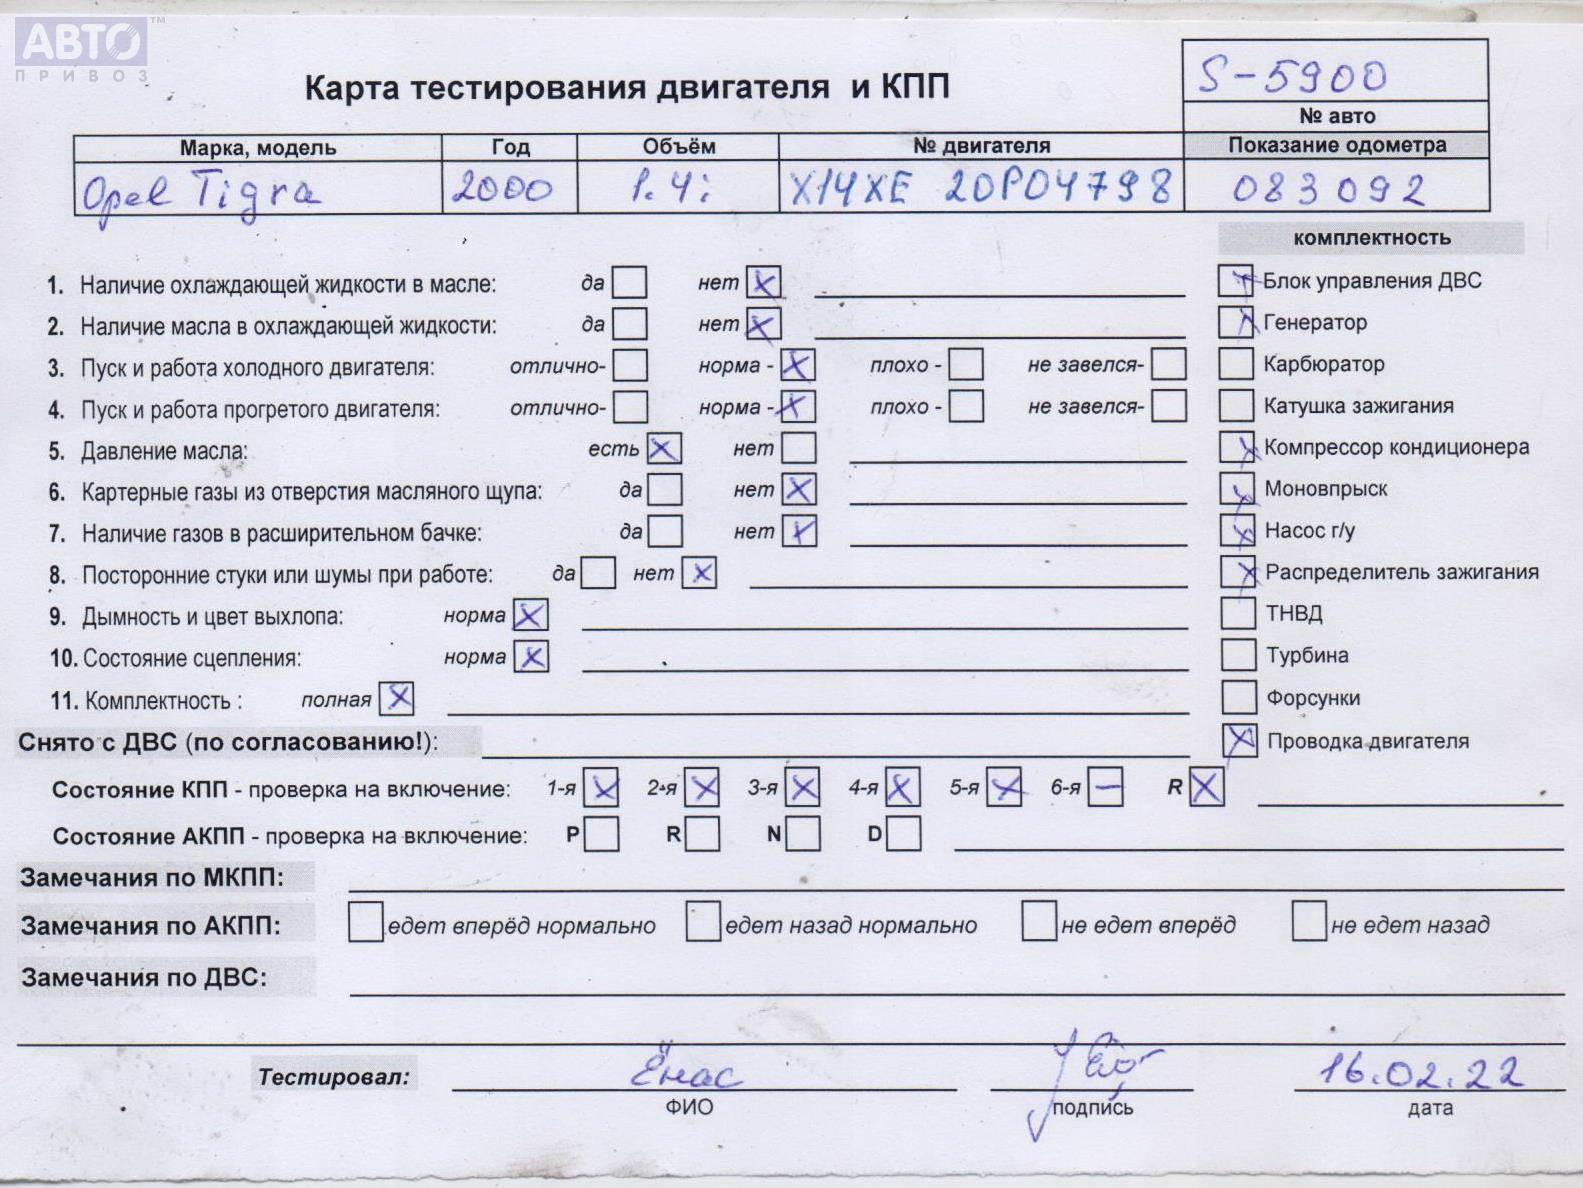 АВТО™
ПРИВОЗ
Карта тестирования двигателя и КПП
S-5900
№ авто
Марка, модель Год Объём № двигателя Показание одометра
Opel Tigra 2000 1.4i X14XE 20P04798 083092
комплектность
1. Наличие охлаждающей жидкости в масле: да нет X Блок управления ДВС
2. Наличие масла в охлаждающей жидкости: да нет X Генератор
3. Пуск и работа холодного двигателя: отлично- норма - X плохо - не завелся- Карбюратор
4. Пуск и работа прогретого двигателя: отлично- норма - X плохо - не завелся- Катушка зажигания
5. Давление масла: есть X нет Компрессор кондиционера
6. Картерные газы из отверстия масляного щупа: да нет X Моновпрыск
7. Наличие газов в расширительном бачке: да нет X Насос г/у
8. Посторонние стуки или шумы при работе: да нет X Распределитель зажигания
9. Дымность и цвет выхлопа: норма X ТНВД
10. Состояние сцепления: норма X Турбина
11. Комплектность : полная X Форсунки
Снято с ДВС (по согласованию!): Проводка двигателя
Состояние КПП - проверка на включение: 1-я X 2-я X 3-я X 4-я X 5-я X 6-я – R X
Состояние АКПП - проверка на включение: P R N D
Замечания по МКПП:
Замечания по АКПП: едет вперёд нормально едет назад нормально не едет вперёд не едет назад
Замечания по ДВС:
Тестировал: Ёнас 16.02.22
ФИО подпись дата